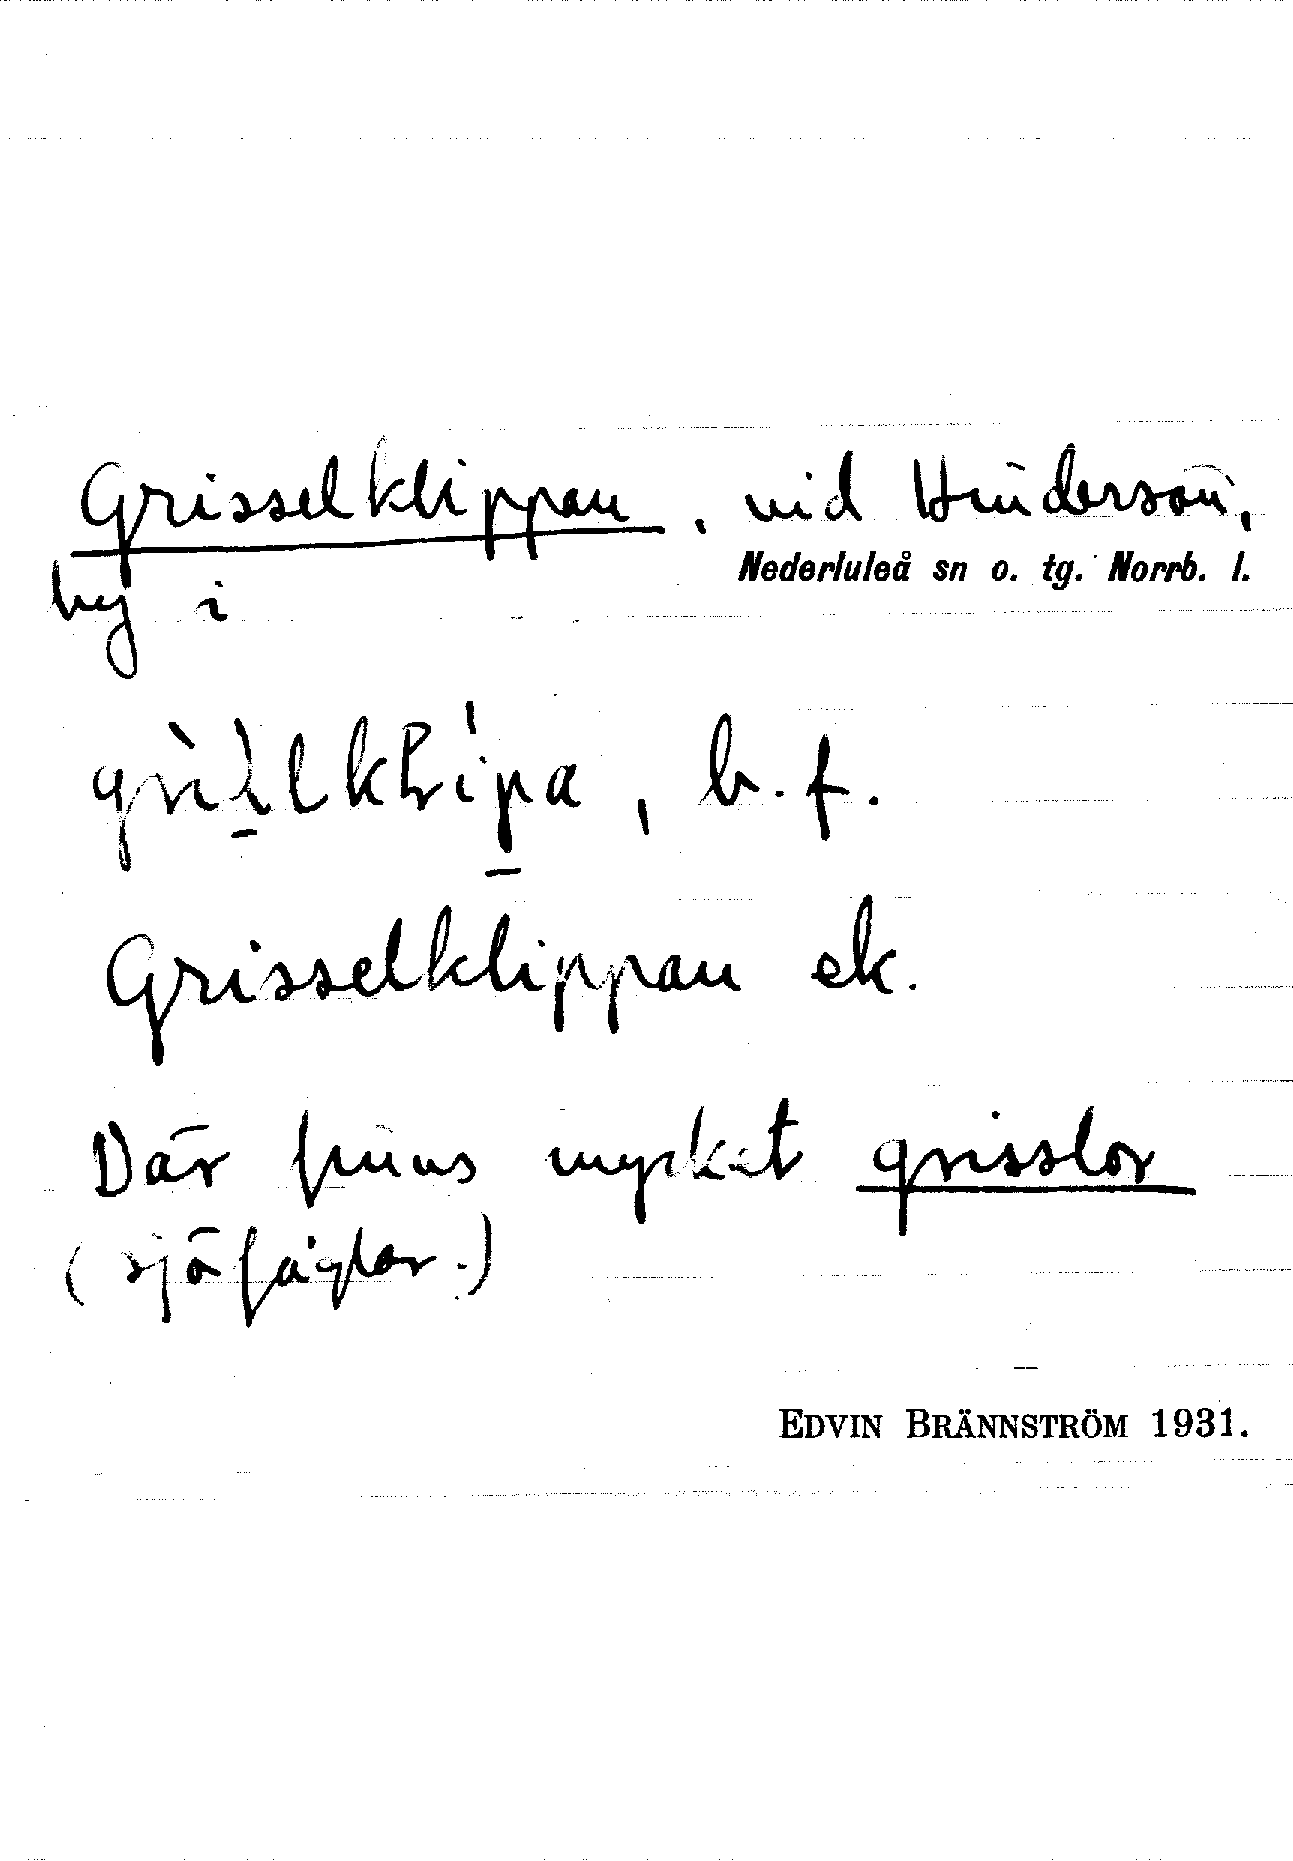 Grisselklippan, vid Hindersön,
Nederluleå sn o. tg. Norrb. l.
by i
b. f.
Grisselklippan ek.
Där finns mycket grisslor
(sjöfåglar.)
EDVIN BRÄNNSTRÖM 1931.